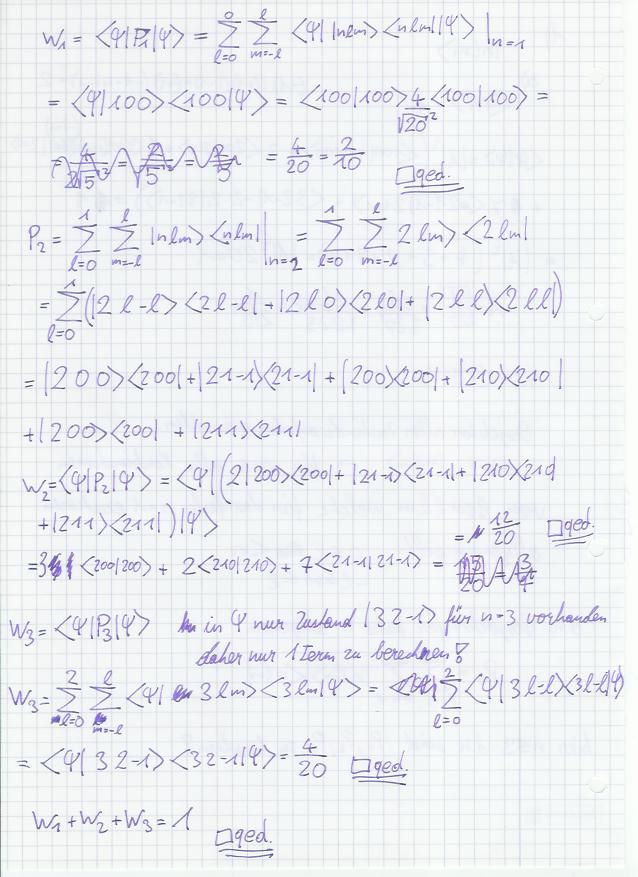 W₁ = ⟨Ψ|P₁|Ψ⟩ = ∑_{l=0}^{0} ∑_{m=-l}^{l} ⟨Ψ| |nlm⟩ ⟨nlm||Ψ⟩ |_{n=1}
= ⟨Ψ|100⟩⟨100|Ψ⟩ = ⟨100|100⟩ 4/√20² ⟨100|100⟩ =
= 4/20 = 2/10 □ qed.
P₂ = ∑_{l=0}^{1} ∑_{m=-l}^{l} |nlm⟩⟨nlm| |_{n=2} = ∑_{l=0}^{1} ∑_{m=-l}^{l} 2lm⟩⟨2lm|
= ∑_{l=0}^{1} (|2 l -l⟩⟨2 l -l| + |2 l 0⟩⟨2l0| + |2 l l⟩⟨2 l l|)
= |200⟩⟨200| + |21-1⟩⟨21-1| + |200⟩⟨200| + |210⟩⟨210|
+|200⟩⟨200| + |211⟩⟨211|
W₂ = ⟨Ψ|P₂|Ψ⟩ = ⟨Ψ|(2|200⟩⟨200| + |21-1⟩⟨21-1| + |210⟩⟨210|
+|211⟩⟨211|)|Ψ⟩
= 3 ⟨200|200⟩ + 2⟨210|210⟩ + 7⟨21-1|21-1⟩ = = 12/20 □ qed.
W₃ = ⟨Ψ|P₃|Ψ⟩ in Ψ nur Zustand |32-1⟩ für n=3 vorhanden
daher nur 1 Term zu berechnen!
W₃ = ∑_{l=0}^{2} ∑_{m=-l}^{l} ⟨Ψ| 3lm⟩⟨3lm|Ψ⟩ = ∑_{l=0}^{2} ⟨Ψ|3l-l⟩⟨3l-l|Ψ⟩
= ⟨Ψ|32-1⟩⟨32-1|Ψ⟩ = 4/20 □ qed.
W₁+W₂+W₃=1 □ qed.